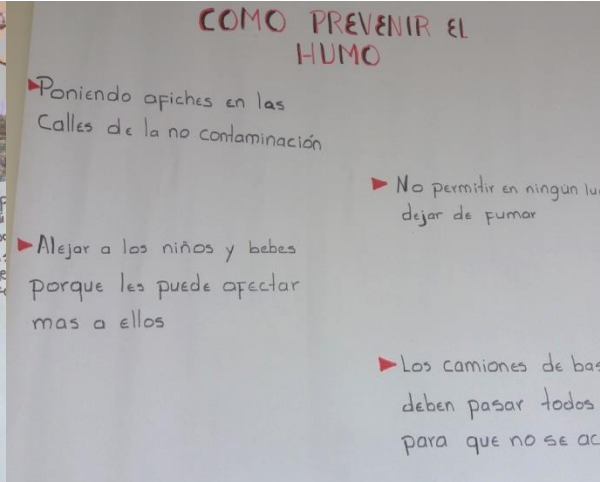 COMO PREVENIR EL
HUMO
Poniendo afiches en las
Calles de la no contaminación
No permitir en ningun
dejar de fumar
Alejar a los niños y bebes
porque les puede afectar
mas a ellos
Los camiones de
deben pasar todos
para que no se